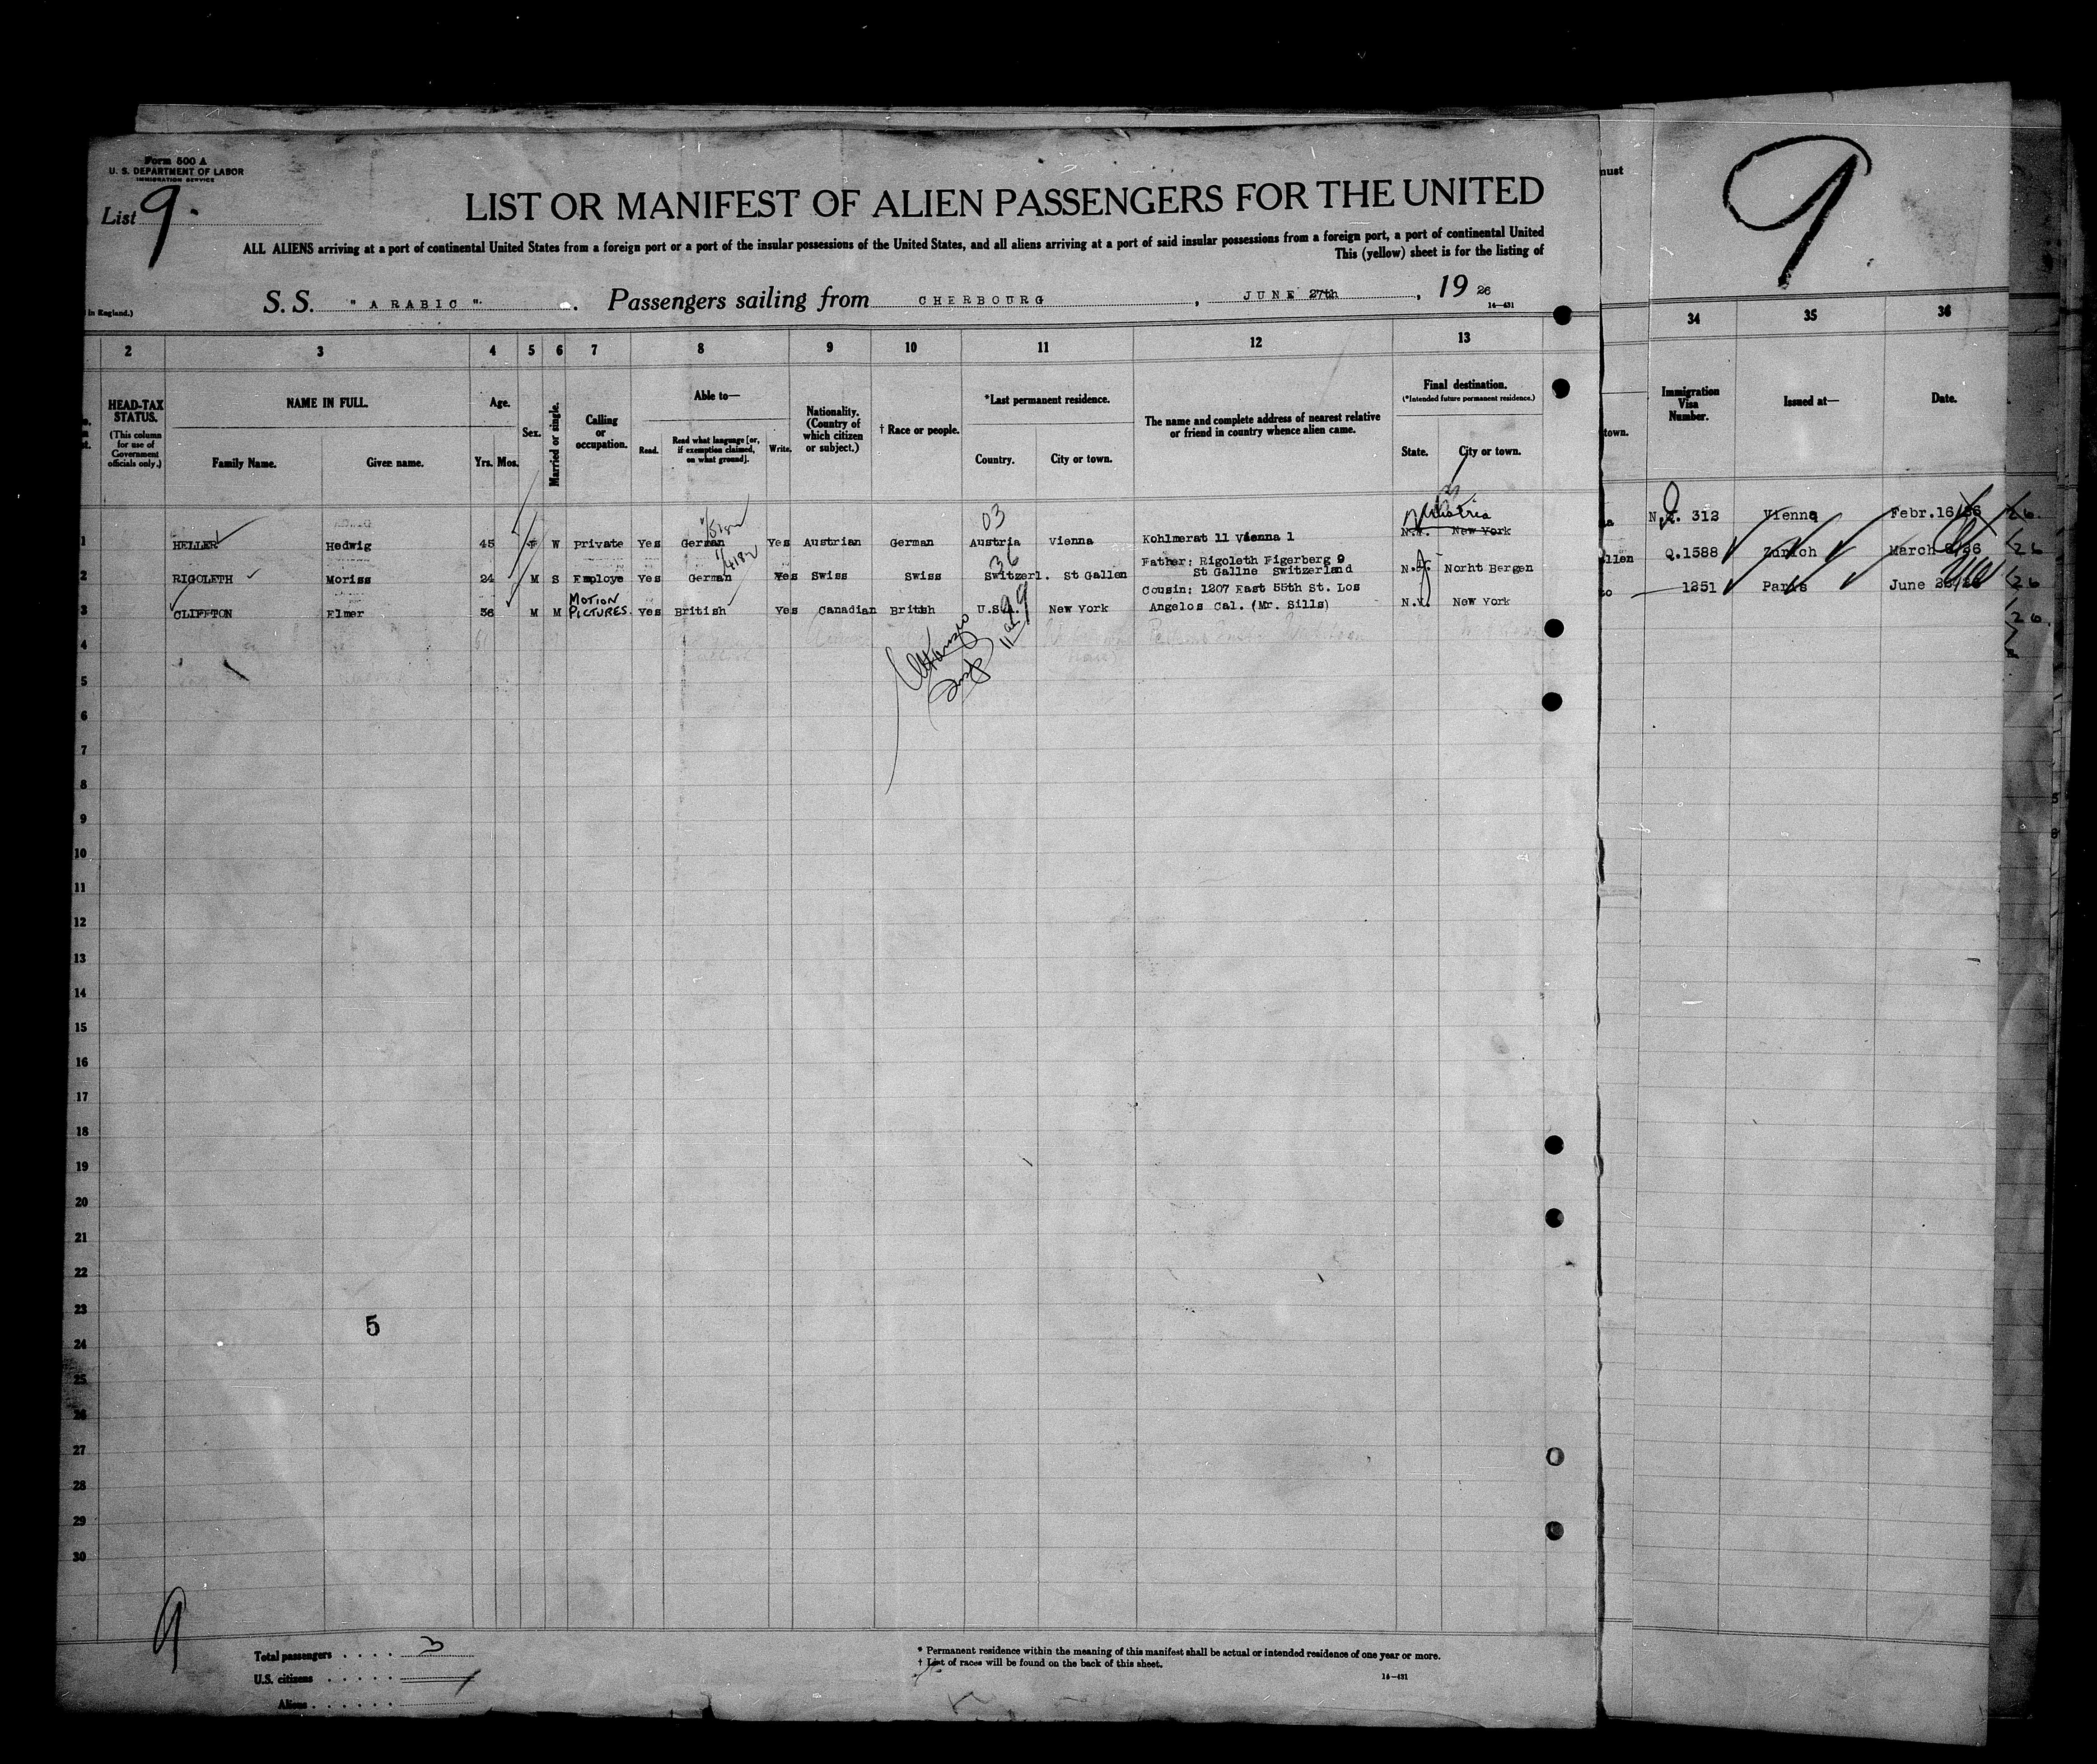 Form 500 A
U. S. DEPARTMENT OF LABOR
IMMIGRATION SERVICE
List 9.
LIST OR MANIFEST OF ALIEN PASSENGERS FOR THE UNITED
ALL ALIENS arriving at a port of continental United States from a foreign port or a port of the insular possessions of the United States, and all aliens arriving at a port of said insular possessions from a foreign port, a port of continental United
This (yellow) sheet is for the listing of
in England.)
S. S. "ARABIC". Passengers sailing from CHERBOURG, JUNE 27th, 19 26
14—431
must
9
2 3 4 5 6 7 8 9 10 11 12 13 34 35 36
HEAD-TAX STATUS. (This column for use of Government officials only.)
NAME IN FULL.
Family Name. Given name.
Age.
Yrs. Mos.
Sex.
Married or single.
Calling or occupation.
Able to—
Read. Read what language [or, if exemption claimed, on what ground]. Write.
Nationality. (Country of which citizen or subject.)
† Race or people.
*Last permanent residence.
Country. City or town.
The name and complete address of nearest relative or friend in country whence alien came.
Final destination.
(*Intended future permanent residence.)
State. City or town.
town.
Immigration Visa Number.
Issued at—
Date.
03
1 HELLER Hedwig 45 F W Private Yes German Yes Austrian German Austria Vienna Kohlmerat 11 Vienna 1 N.Y. New York 312 Vienna Febr.16/26 26.
36
2 RIGOLETH Moriss 24 M S Employe Yes German Yes Swiss Swiss Switzerl. St Gallen Father: Rigoleth Figerberg 9
St Gallne Switzerland N.J. Norht Bergen Q.1588 Zurich March 8/26 26
99
3 CLIFFTON Elmer 36 M M MOTION PICTURES. Yes British Yes Canadian British U.S.A. New York Cousin: 1207 East 55th St. Los
Angelos Cal. (Mr. Sills) N.Y. New York 1251 Paris June 26
4
5
6
7
8
9
10
11
12
13
14
15
16
17
18
19
20
21
22
23
5
24
25
26
27
28
29
30
9
Total passengers . . . . 3
U.S. citizens . . . . .
Aliens . . . . . .
* Permanent residence within the meaning of this manifest shall be actual or intended residence of one year or more.
† List of races will be found on the back of this sheet.
14—431